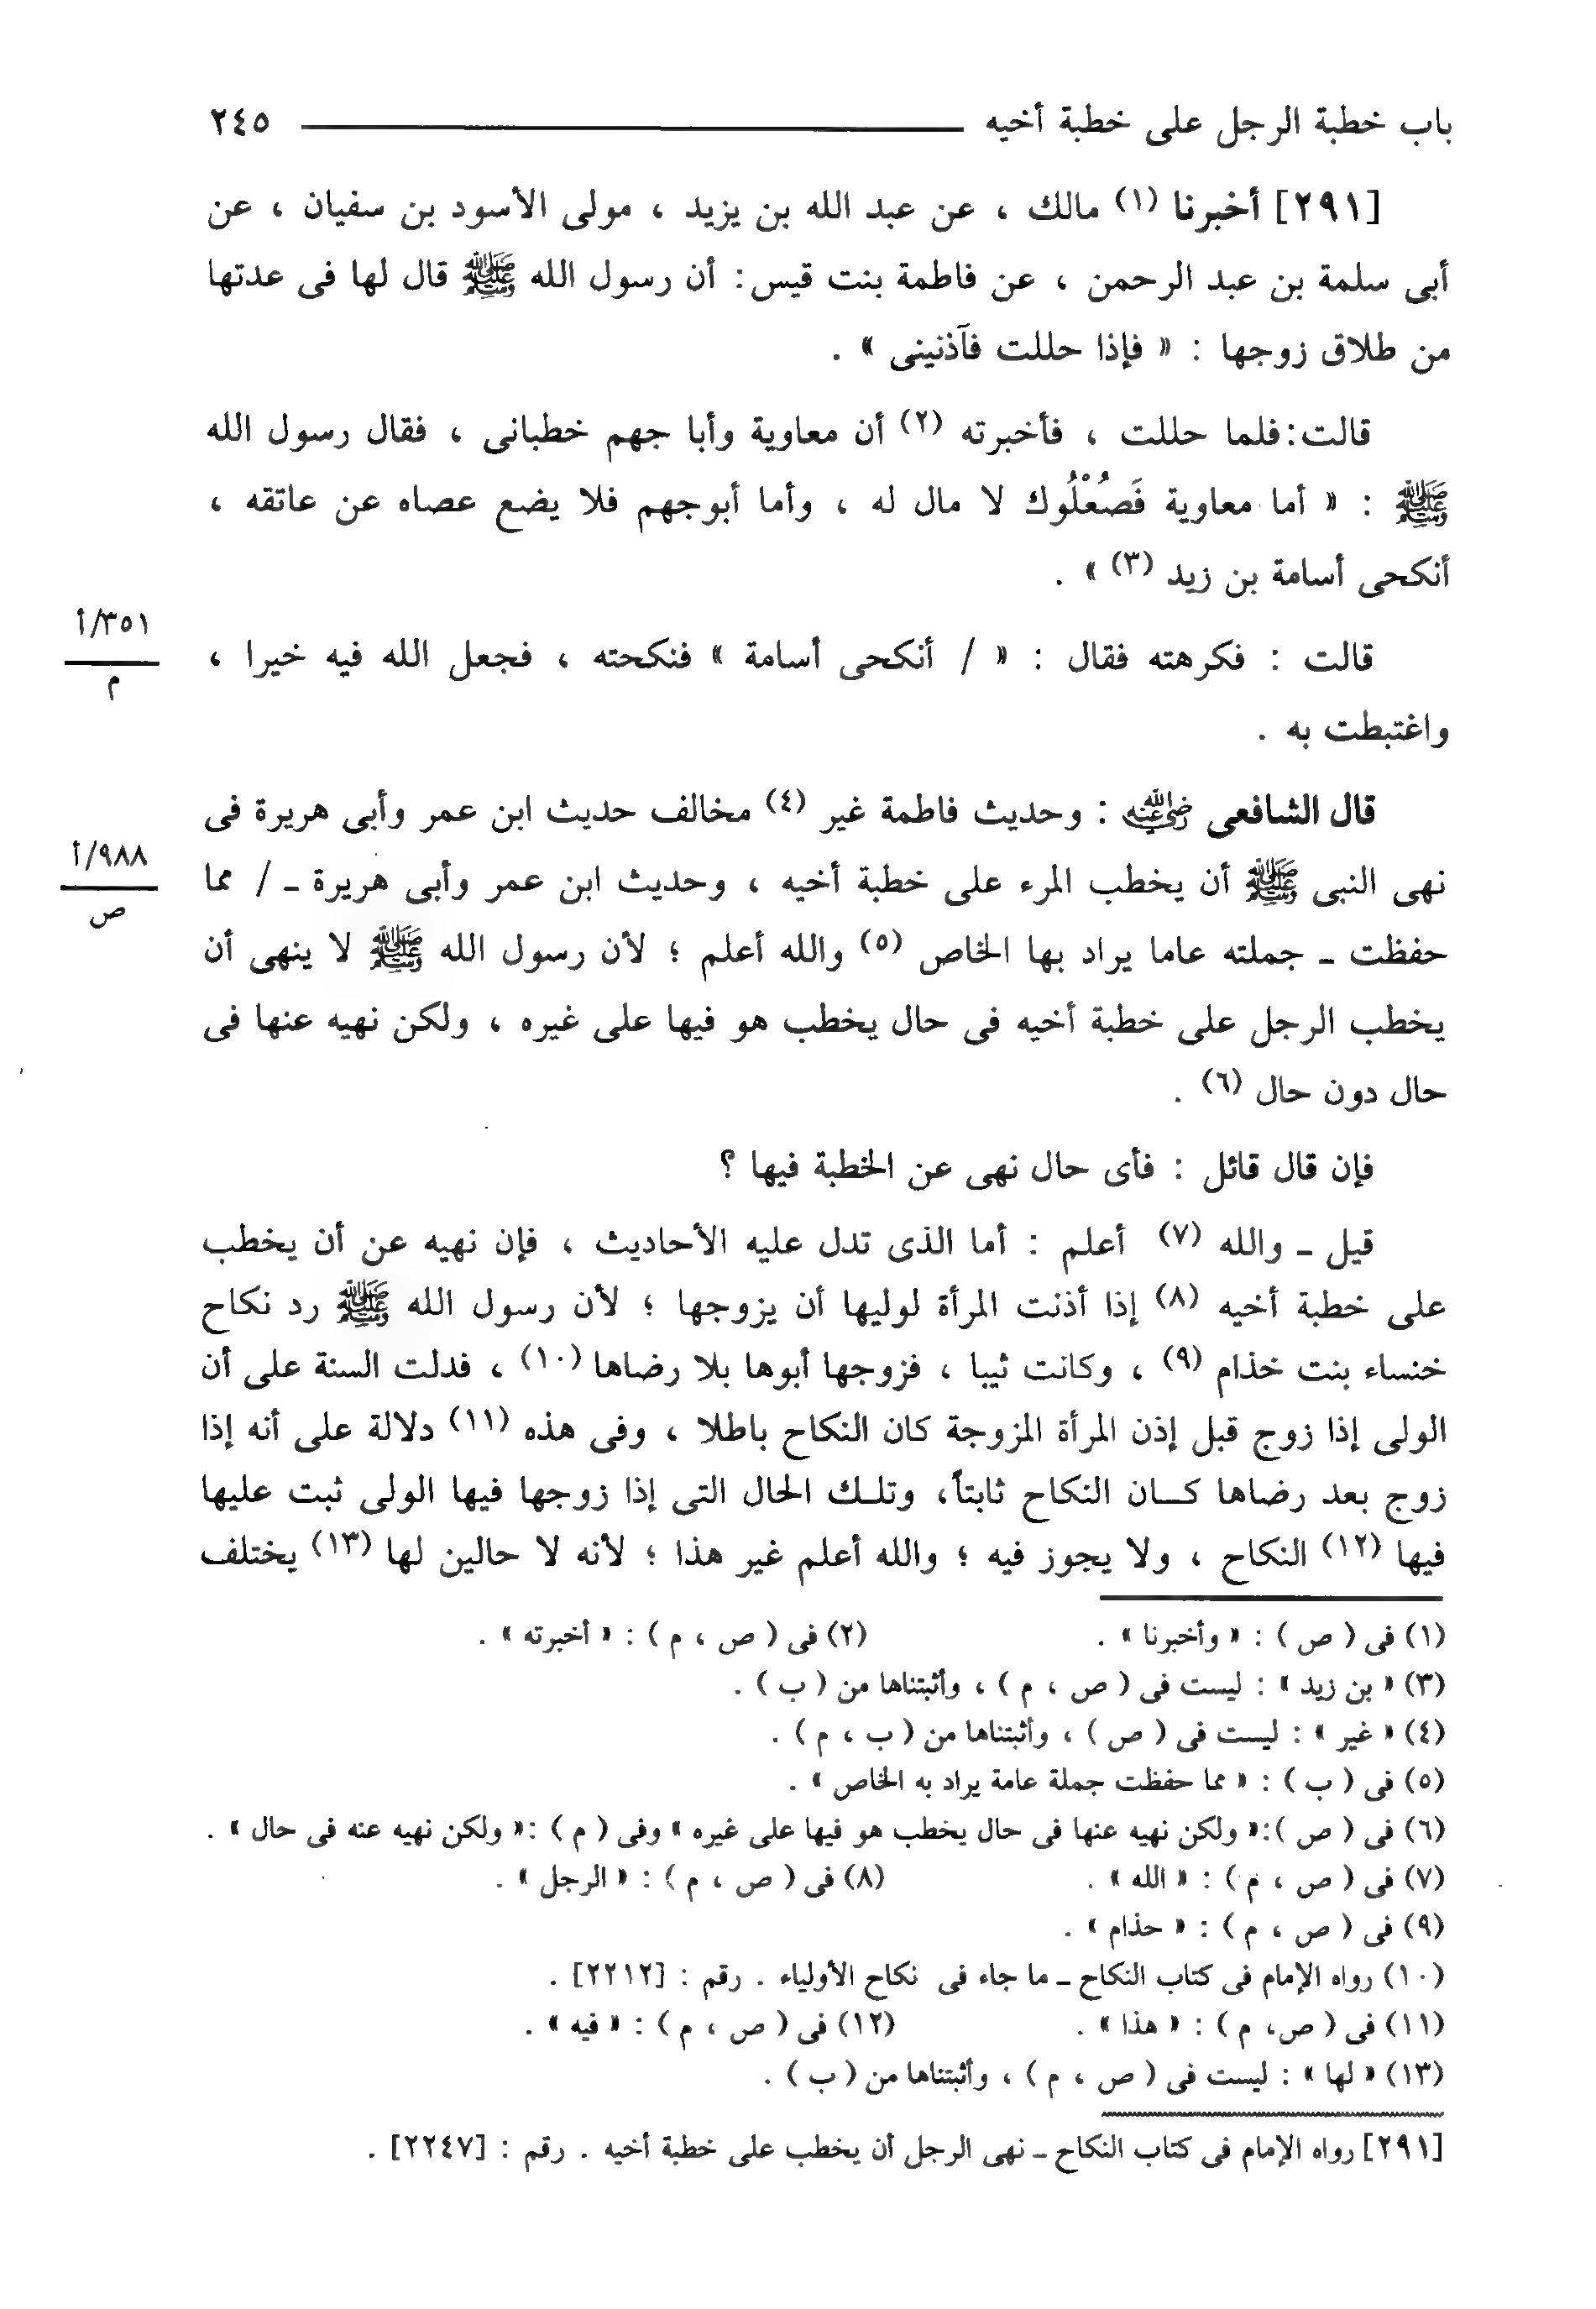 باب خطبة الرجل على خطبة أخيه ٢٤٥
[٢٩١] أخبرنا (١) مالك ، عن عبد الله بن يزيد ، مولى الأسود بن سفيان ، عن
أبى سلمة بن عبد الرحمن ، عن فاطمة بنت قيس: أن رسول الله ﷺ قال لها فى عدتها
من طلاق زوجها : « فإذا حللت فآذنينى » .
قالت:فلما حللت ، فأخبرته (٢) أن معاوية وأبا جهم خطبانى ، فقال رسول الله
ﷺ : « أما معاوية فَصُعْلُوك لا مال له ، وأما أبوجهم فلا يضع عصاه عن عاتقه ،
أنكحى أسامة بن زيد (٣) » .
٣٥١/أ
م
قالت : فكرهته فقال : « / أنكحى أسامة » فنكحته ، فجعل الله فيه خيرا ،
واغتبطت به .
قال الشافعى رضي الله عنه : وحديث فاطمة غير (٤) مخالف حديث ابن عمر وأبى هريرة فى
٩٨٨/أ
ص
نهى النبى ﷺ أن يخطب المرء على خطبة أخيه ، وحديث ابن عمر وأبى هريرة ـ / مما
حفظت ـ جملته عاما يراد بها الخاص (٥) والله أعلم ؛ لأن رسول الله ﷺ لا ينهى أن
يخطب الرجل على خطبة أخيه فى حال يخطب هو فيها على غيره ، ولكن نهيه عنها فى
حال دون حال (٦) .
فإن قال قائل : فأى حال نهى عن الخطبة فيها ؟
قيل ـ والله (٧) أعلم : أما الذى تدل عليه الأحاديث ، فإن نهيه عن أن يخطب
على خطبة أخيه (٨) إذا أذنت المرأة لوليها أن يزوجها ؛ لأن رسول الله ﷺ رد نكاح
خنساء بنت خذام (٩) ، وكانت ثيبا ، فزوجها أبوها بلا رضاها (١٠) ، فدلت السنة على أن
الولى إذا زوج قبل إذن المرأة المزوجة كان النكاح باطلا ، وفى هذه (١١) دلالة على أنه إذا
زوج بعد رضاها كـــان النكاح ثابتاً، وتلــك الحال التى إذا زوجها فيها الولى ثبت عليها
فيها (١٢) النكاح ، ولا يجوز فيه ؛ والله أعلم غير هذا ؛ لأنه لا حالين لها (١٣) يختلف
(١) فى ( ص ) : « وأخبرنا » . (٢) فى ( ص ، م ) : « أخبرته » .
(٣) « بن زيد » : ليست فى ( ص ، م ) ، وأثبتناها من ( ب ) .
(٤) « غير » : ليست فى ( ص ) ، وأثبتناها من ( ب ، م ) .
(٥) فى ( ب ) : « مما حفظت جملة عامة يراد به الخاص » .
(٦) فى ( ص ):« ولكن نهيه عنها فى حال يخطب هو فيها على غيره » وفى ( م ) :« ولكن نهيه عنه فى حال » .
(٧) فى ( ص ، م ) : « الله » . (٨) فى ( ص ، م ) : « الرجل » .
(٩) فى ( ص ، م ) : « حذام » .
(١٠) رواه الإمام فى كتاب النكاح ـ ما جاء فى نكاح الأولياء . رقم : [٢٢١٢] .
(١١) فى ( ص، م ) : « هذا » . (١٢) فى ( ص ، م ) : « فيه » .
(١٣) « لها » : ليست فى ( ص ، م ) ، وأثبتناها من ( ب ) .
[٢٩١] رواه الإمام فى كتاب النكاح ـ نهى الرجل أن يخطب على خطبة أخيه . رقم : [٢٢٤٧] .